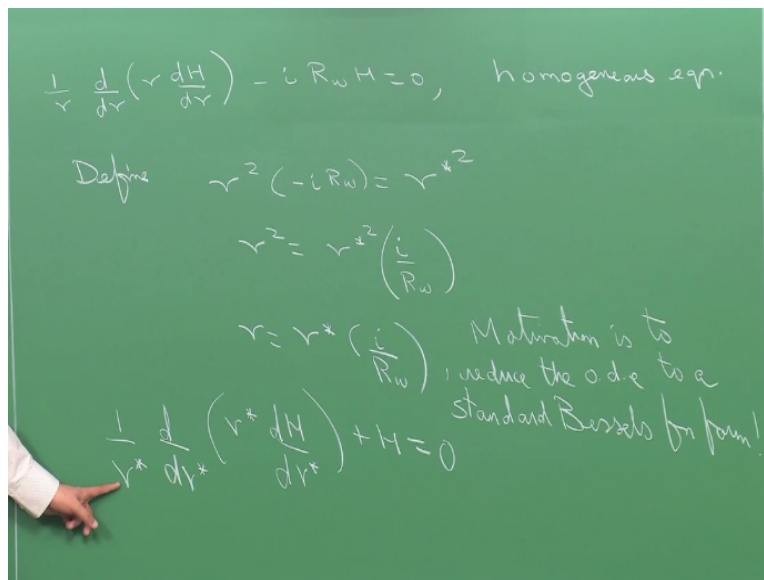 1/r d/dr (r dH/dr) - i Rω H = 0, homogeneous eqn.
Define r² (-i Rω) = r*²
r² = r*² (i/Rω)
r = r* (i/Rω)
Motivation is to
reduce the o.d.e to a
standard Bessels fn form!
1/r* d/dr* (r* dH/dr*) + H = 0